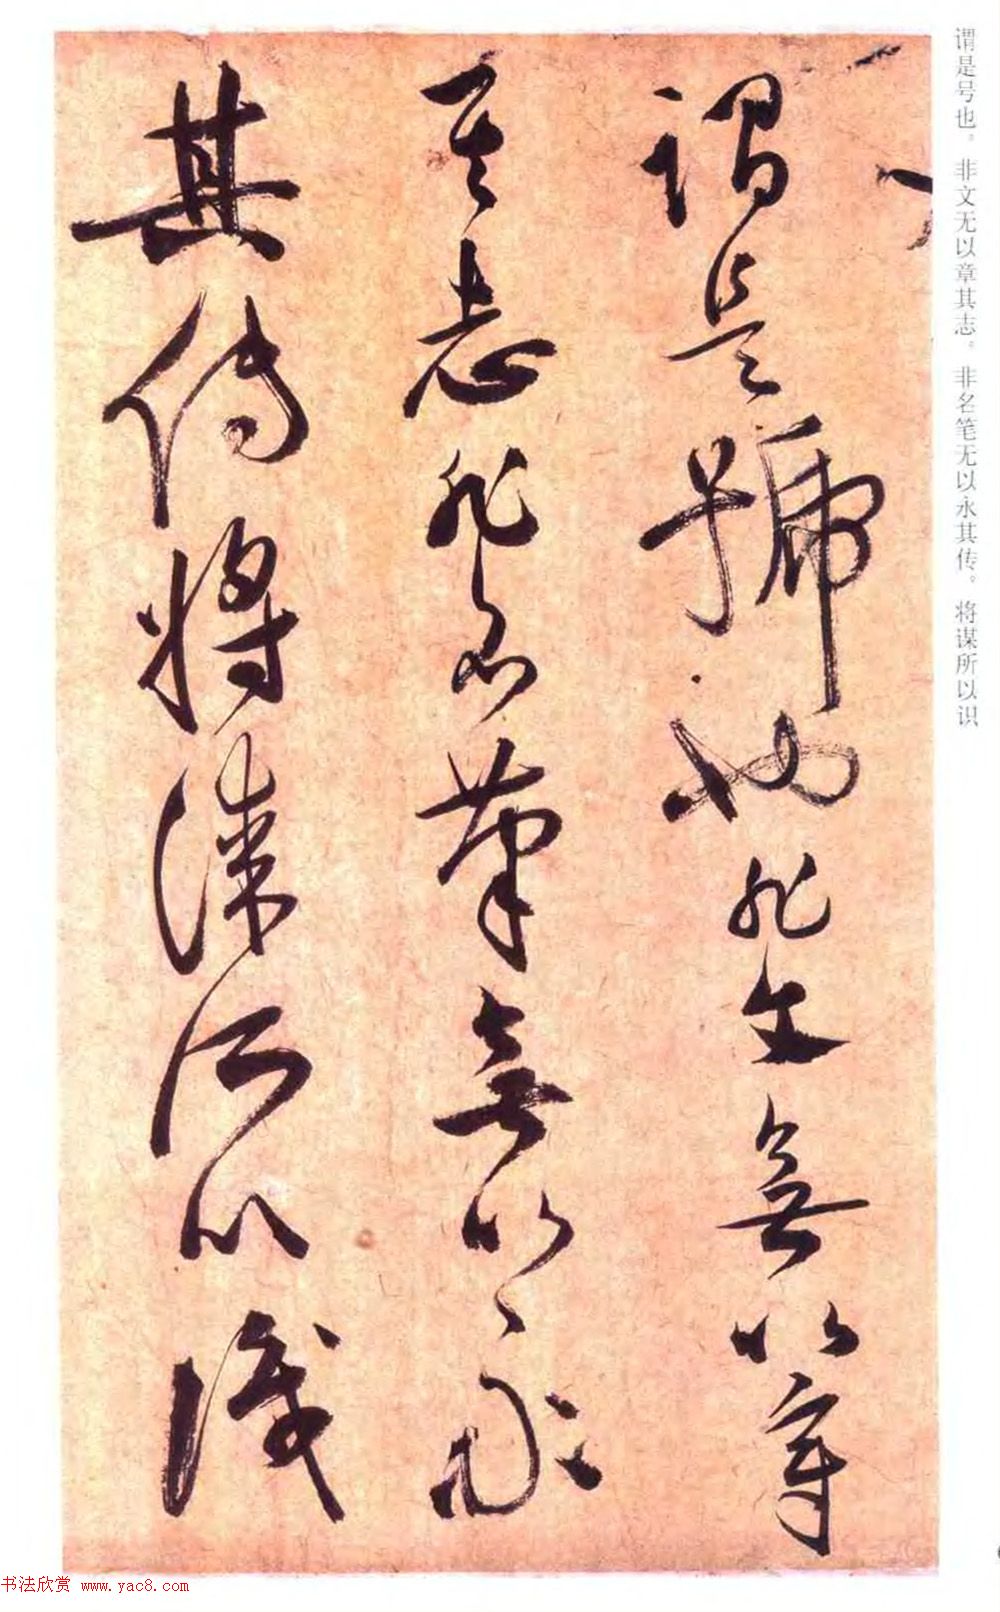 谓是号也。非文无以章其志。非名笔无以永其传。将谋所以识
謂是號也非文無以章
其志非名筆無以永
其傳將謀所以識
书法欣赏 www.yac8.com